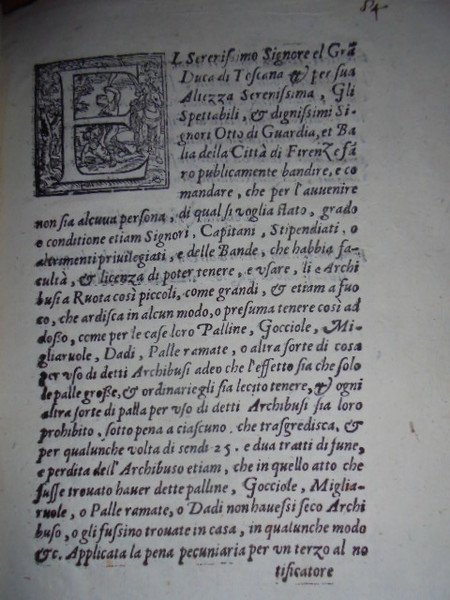 54
L Serenissimo Signore el Grã
Duca di Toscana & per sua
Altezza Serenissima, Gli
Spettabili, & dignissimi Si-
gnori Otto di Guardia, et Ba
lia della Città di Firenze fã
ro publicamente bandire, e co
mandare, che per l'auuenire
non sia alcuua persona, di qual si voglia stato, grado
e conditione etiam Signori, Capitani, Stipendiati, o
altrimenti priuilegiati, e delle Bande, che habbia fa-
cultà, & licenza di poter tenere, e vsare, li e Archi
busi a Ruota così piccoli, come grandi, & etiam a fuo
co, che ardisca in alcun modo, o presuma tenere così ad
dosso, come per le case loro Palline, Gocciole, Mi-
gliaruole, Dadi, Palle ramate, o altra sorte di cosa
per vso di detti Archibusi adeo che l'effetto sia che solo
le palle grosse, & ordinarie gli sia lecito tenere, & ogni
altra sorte di palla per vso di detti Archibusi sia loro
prohibito, sotto pena a ciascuno, che trasgredisca, &
per qualunche volta di scudi 25. e dua tratti di fune,
e perdita dell'Archibuso etiam, che in quello atto che
fusse trouato hauer dette palline, Gocciole, Miglia-
ruole, o Palle ramate, o Dadi non hauessi seco Archi
buso, o gli fussino trouate in casa, in qualunche modo
&c. Applicata la pena pecuniaria per vn terzo al no
tificatore